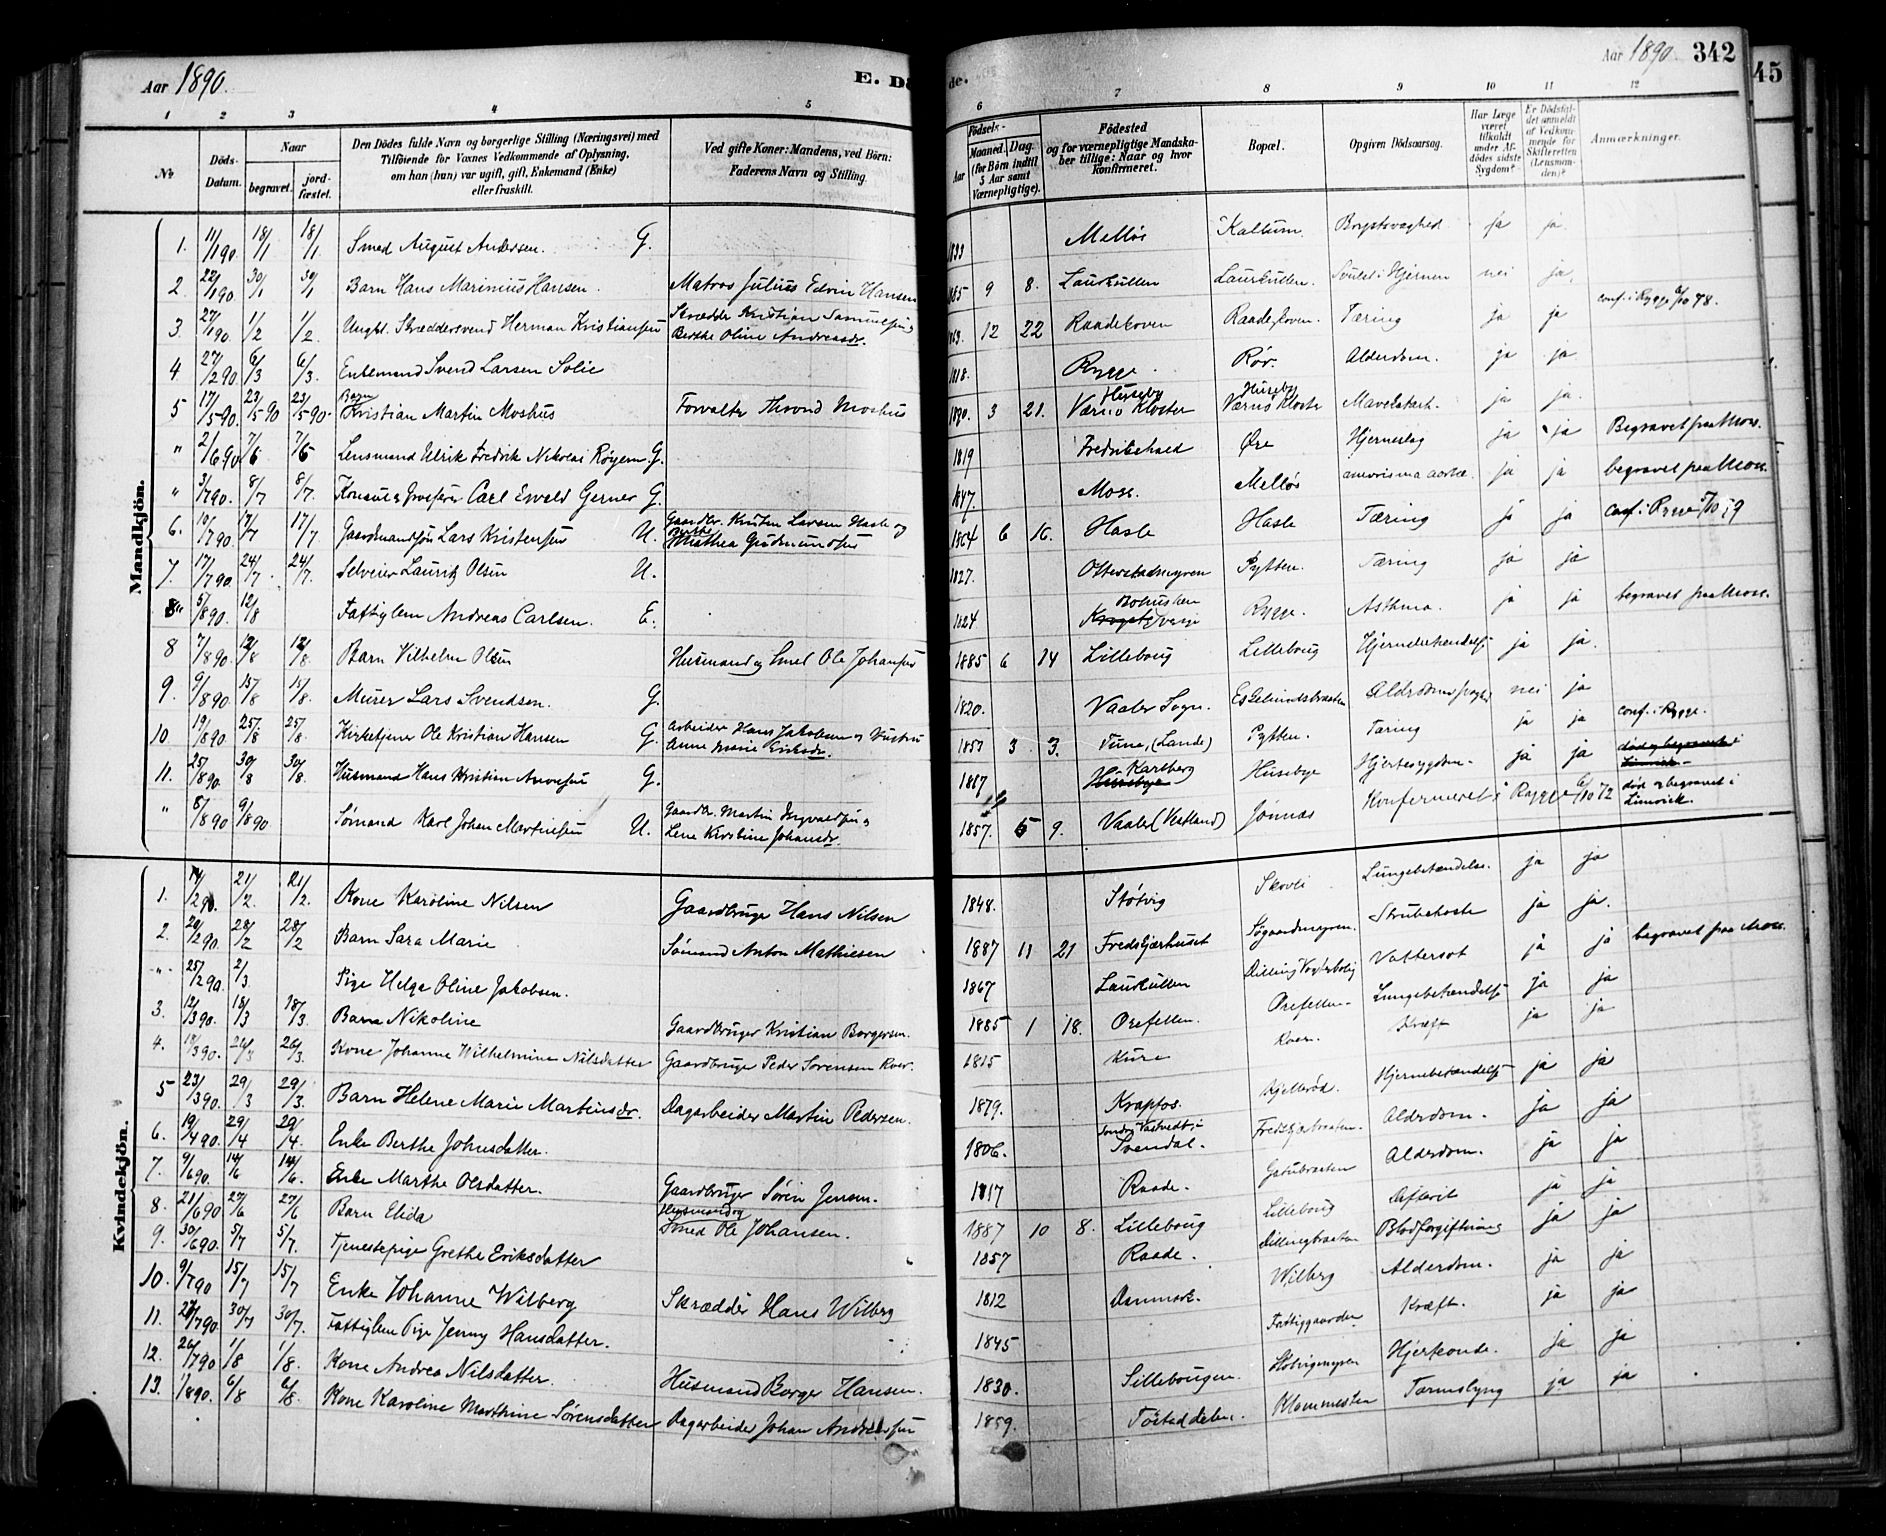 Aar 1890.
E. Dø
de.
Aar 1890
342
45
1 2 3 4 5 6 7 8 9 10 11 12
No
Døds-Datum.
Naar
begravet.
jordfæstet.
Den Dødes fulde Navn og borgerlige Stilling (Næringsvei) med
Tilføiende for Voxnes Vedkommende af Oplysning,
om han (hun) var ugift, gift, Enkemand (Enke)
eller fraskilt.
Ved gifte Koner: Mandens, ved Børn:
Faderens Navn og Stilling
Fødsels-
Aar
Maaned.
Dag.
(for Børn indtil
5 Aar samt
Værnepligtige).
Fødested
og for værnepligtige Mandska-
ber tillige: Naar og hvor
konfirmeret.
Bopæl.
Opgiven Dødsaarsag.
Har Læge
været
tilkaldt
under Af-
dødes sidste
Sygdom?
Er Dødsfal-
det anmeldt
af Vedkom-
mende for
Skifteretten
(Lensman-
den)?
Anmærkninger.
Mandkjøn.
1. 11/1 90 18/1 18/1 Smed August Andersen. G. 1833 Melløs Kallum Brystsvaghed ja ja
2 22/1 90 30/1 30/1 Barn Hans Marinius Hansen. Matros Julius Edvin Hansen 1885 9 8. Laurkullen Laurkullen Svulst i Hjernen nei ja
3 27/1 90 1/2 1/2 Ungk. Skræddersvend Herman Kristiansen Skrædder Kristian Samuelsen &
Berthe Oline Andreasdr. 12 22 Raadeskoven Raadeskoven. Tæring ja ja conf. i Rygge 78.
4 27/2 90 6/3 6/3. Enkemand Svend Larsen Solie 1818. Rygge. Rør. Alderdom. ja ja
5 17/5 90. 23/5 90 23/5 90- Barn Kristian Martin Moshus Forvalter Thrond Moshus 1890. 3 21. Huseby
Værno Kloster Huseby
Værno Kloster Mavekatarh. ja ja
" 2/6 90 7/6 7/6 Lensmand Ulrik Fredrik Nikolai Røyem G. 1819 Fredrikshald Øre Hjerneslag ja ja Begravet paa Moss.
" 3/7 90. 8/7 8/7. Konsul & Carl Ewald Gerner G. 1847. Moss. Melløs ja ja begravet paa Moss.
6. 10/7 90. 17/7 17/7 Gaardmandssøn Lars Kristensen U. Gaardbr. Larsen Hasle og
Mathea Gudmundsen 1864 6 16. Hasle Hasle Tæring ja ja conf. i Rygge
7. 17/7 90. 24/7 24/7. Selveier Lauritz Olsen U. 1827. Ottersstadmyren Pytten. Tæring ja ja
5/8 90. 12/8 Fattiglem Andreas Carlsen. E. 1824 Bohuslen Rygge. Asthma. ja ja begravet paa Moss.
8 7/8 90. 12/8 12/8. Barn Vilhelm Olsen Husmand og Smed Ole Johansen 1885 6 14 Lilleboug Lilleboug ja ja.
9. 9/8 90. 15/8 15/8. Murer Lars Svendsen. G. 1820. Vaaler Sogn. nei ja
10. 19/8 90. 25/8 25/8. Kirketjener Ole Kristian Hansen G. Arbeider Hans Jakobsen og Hustru
Anne Eriksdr. 1857 3. 3. Tune, (Lande) Pytten. Tæring ja ja conf. i Rygge.
11. 25/8 90. 30/8 30/8. Husmand Hans Kristian G. Karlberg
Husebye Husebye Hjertesygdom- ja ja død og begravet i Limvick
" 8/8 90 9/8 90 Sømand Karl Johan Martinsen U. Gaardbr. Martin &
Lene Kirstine Johansdr. 1857. 5 9. Vaaler (Vestland) Jønnæs Konfirmeret i Rygge 72 død og begravet i
Limvick.
Kvindekjøn.
1. 14/2 90. 21/2 21/2. Kone Karoline Nilsen Gaardbruger Hans Nilsen 1848. Støtvig Skovli Lungebetændelse. ja ja
2. 20/2 90. 28/2 28/2 Barn Sara Marie Sømand Anton Mathiesen 1887 11 21 Fredskjærhuset Søgaardsmyren. Strubehoste ja ja.
" 25/2 90. 2/3. Pige Helga Oline Jakobsen. 1867 Laurkullen Dilling Vogterbolig Vattersot ja ja begravet paa Moss.
3. 12/3 90. 18/3 18/3. Barn Nikoline Gaardbruger Kristian Borgersen. 1885 1 18. Orefellen. Orefellen- Lungebetændelse ja ja
4. 18/3 90. 26/3 26/3. Kone Johanne Wilhelmine Nilsdatter Gaardbruger Peder Sørensen Roer. 1815 Kure Roer. Kræft ja ja
5 23/3 90. 29/3 29/3. Barn Helene Marie Martinsdr. Dagarbeider Martin Pedersen. 1879. Krapfos. Kjellerød. Hjernebetændelse ja ja
6. 19/4 90. 29/4 29/4. Enke Berthe Johnsdatter. 1806. Svendal. Alderdom. ja ja
7. 9/6 90. 14/6 14/6. Enke Marthe Olsdatter. Gaardbruger Søren Jensen. 1817 Raade. Gatubraaten Alderdom. ja ja
8. 21/6 90 27/6 27/6 Barn Elida Husmand og
Smed Ole Johansen. 1887 10 8. Lilleboug Lilleboug ja ja
9. 30/6 90. 5/7 5/7. Tjenestepige Grethe Eriksdatter 1857 Raade. Dillingbraaten Blodforgiftning ja ja
10. 9/7 90 15/7 15/7 Enke Johanne Wilberg Skrædder Hans Wilberg 1812 Danmark. Wilberg Alderdom. ja ja
11. 27/7 90. 30/7 30/7. Fattiglem Pige Jenny Hansdatter. 1845 Fattiggaarden Kræft. ja ja
12. 26/7 90 1/8 1/8. Kone Andrea Nilsdatter. Husmand Borger Hansen. 1830. Lillebougen. Støtvigmyren Hjerteonde. ja ja
13. 1/8 90. 6/8 6/8. Kone Karoline Marthine Sørensdatter Dagarbeider Johan Andersen 1859. Klommesten Tarmslyng ja ja